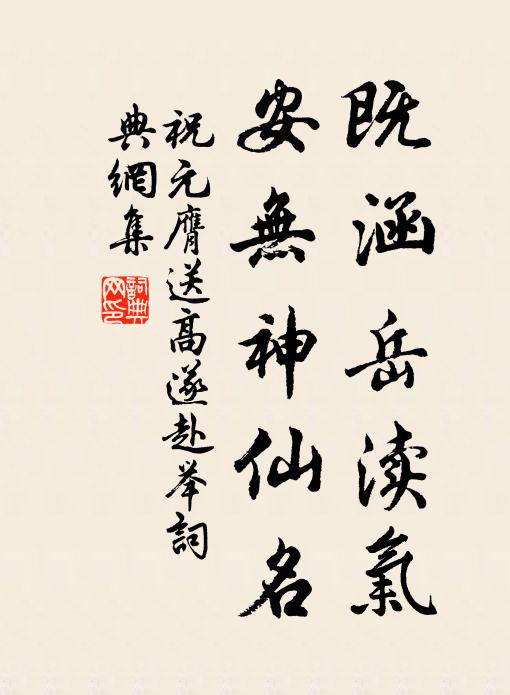 既涵岳渎氣
安無神仙名
祝元膺送高遂赴举詞
典網集
詞典网印